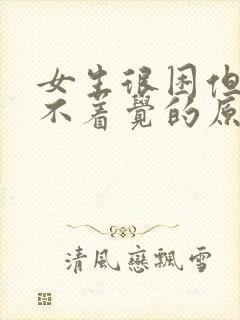 女生很困但
不着覺的原
清風戀飄雪